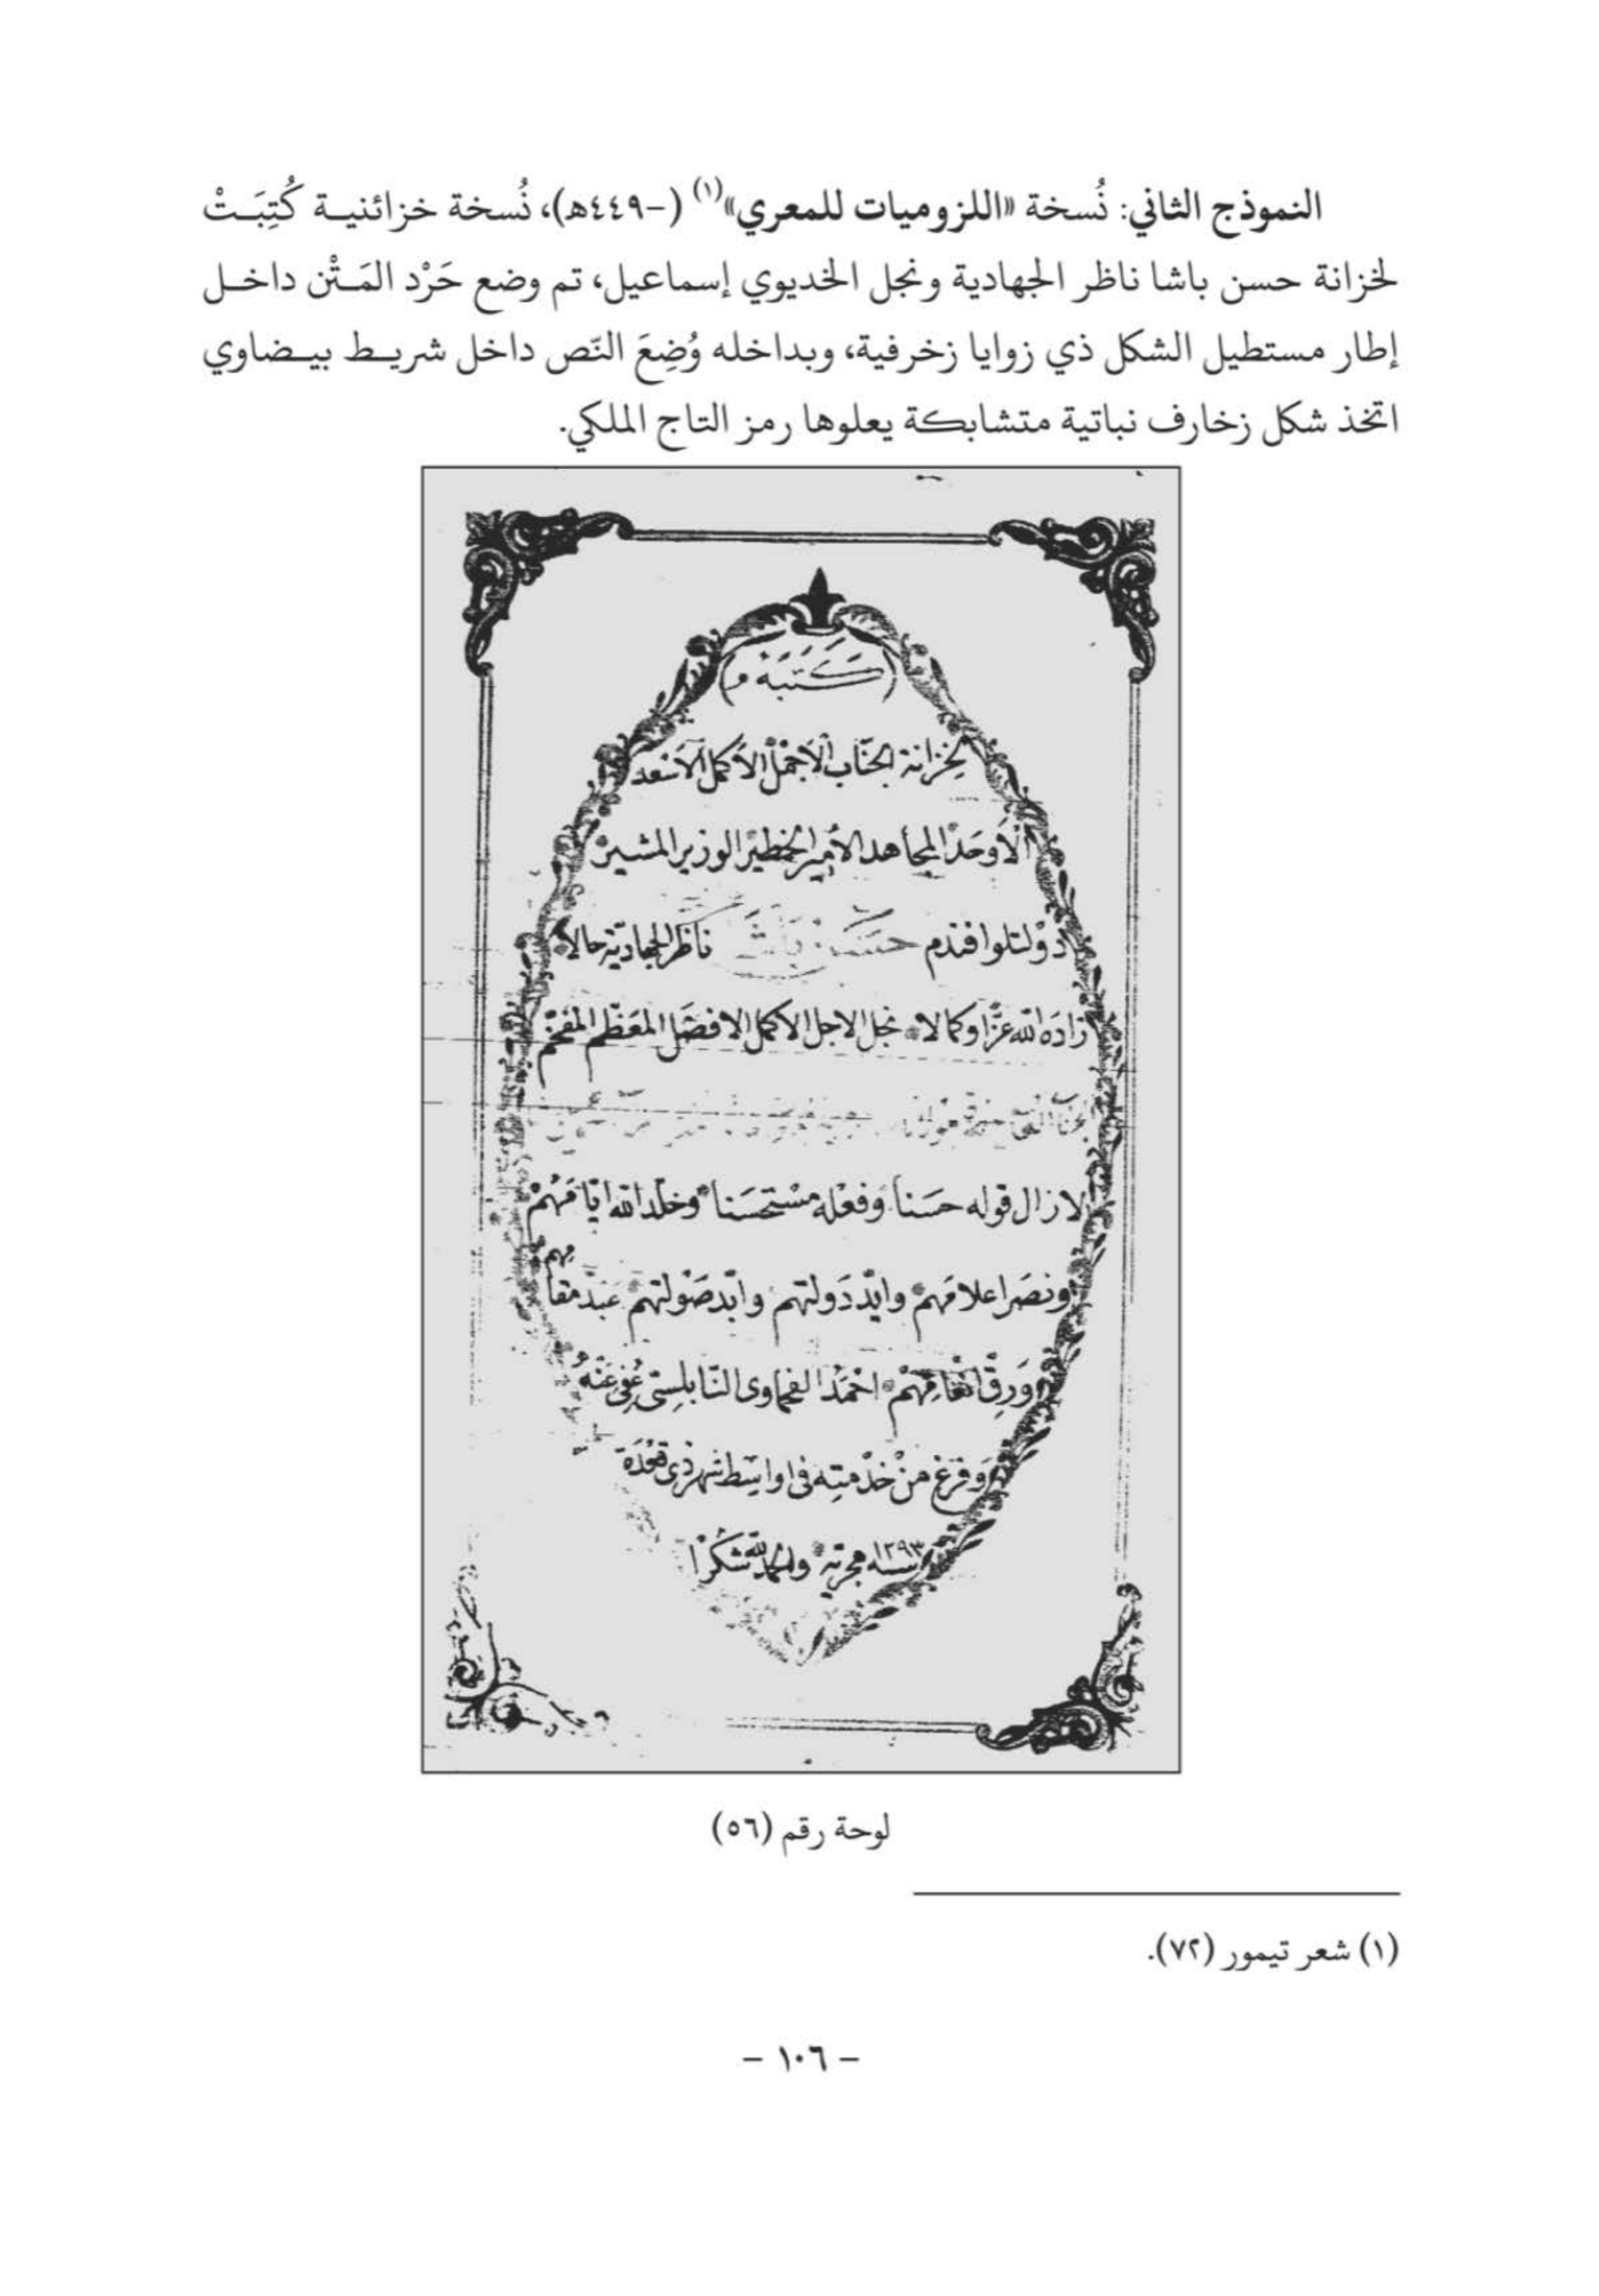 النموذج الثاني: نُسخة «اللزوميات للمعري»(١) (-٤٤٩هـ)، نُسخة خزائنيـة كُتِبَـتْ
لخزانة حسن باشا ناظر الجهادية ونجل الخديوي إسماعيل، تم وضع حَرْد المَـتْن داخـل
إطار مستطيل الشكل ذي زوايا زخرفية، وبداخله وُضِعَ النّص داخل شريـط بيـضاوي
اتخذ شكل زخارف نباتية متشابكة يعلوها رمز التاج الملكي.
كتبه
لخزانة الجناب الأجمل الأكمل الأسعد
الأوحد المجاهد الأمير الخطير الوزير المشير
دولتلو افندم حسن باشا ناظر الجهادية حالا
زاده الله عزا وكمالا نجل الاجل الأكمل الافضل المعظم المفخم
لازال قوله حسنا وفعله مستحسنا وخلد الله ايامهم
ونصر اعلامهم وايد دولتهم وابد صولتهم عبد مقامهم
ورق انعامهم احمد الفحماوى النابلسى عفى عنه
وفرغ من خدمته فى اواسط شهر ذى قعدة
سنة ١٢٩٣ هجرية والحمد لله شكرا
لوحة رقم (٥٦)
(١) شعر تيمور (٧٢).
- ١٠٦ -